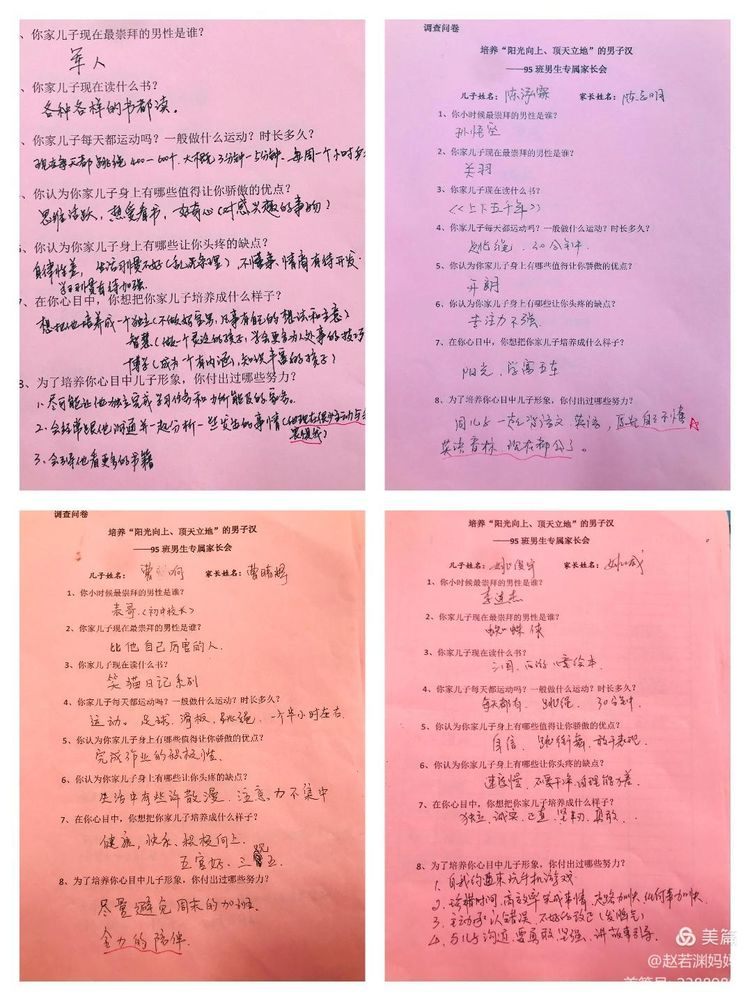 、你家儿子现在最崇拜的男性是谁?
军人
、你家儿子现在读什么书?
各种各样的书都读。
、你家儿子每天都运动吗?一般做什么运动?时长多久?
现在每天都跳绳400-600个,大概3分钟-5分钟,每周一个小时
、你认为你家儿子身上有哪些值得让你骄傲的优点?
思维活跃,热爱看书,好奇心(对感兴趣的事物)
、你认为你家儿子身上有哪些让你头疼的缺点?
自律性差,生活习惯不好(乱没条理),不懂事,情商有待开发
学习习惯有待加强。
7、在你心目中,你想把你家儿子培养成什么样子?
想把他培养成一个独立(不做妈宝男,凡事有自己的想法和主意)
智慧(做一个灵活的孩子,学会更多为人处事的技巧
博学(成为一个有内涵,知识丰富的孩子)
8、为了培养你心目中儿子形象,你付出过哪些努力?
1、尽可能让他独立完成学习任务和力所能及的家务。
2、会经常跟他沟通并一起分析一些发生的事情
3、会引导他看更多的书籍
调查问卷
培养“阳光向上、顶天立地”的男子汉
——95班男生专属家长会
儿子姓名:陈泓霖 家长姓名:陈志明
1、你小时候最崇拜的男性是谁?
孙悟空
2、你家儿子现在最崇拜的男性是谁?
关羽
3、你家儿子现在读什么书?
《上下五千年》
4、你家儿子每天都运动吗?一般做什么运动?时长多久?
跳绳,30分钟
5、你认为你家儿子身上有哪些值得让你骄傲的优点?
开朗
6、你认为你家儿子身上有哪些让你头疼的缺点?
专注力不强
7、在你心目中,你想把你家儿子培养成什么样子?
阳光,学富五车
8、为了培养你心目中儿子形象,你付出过哪些努力?
同儿子一起学语文、英语,原先自己不懂
英语音标,现在都会了。
调查问卷
培养“阳光向上、顶天立地”的男子汉
——95班男生专属家长会
儿子姓名:曹 家长姓名:曹晴
1、你小时候最崇拜的男性是谁?
表哥(初中校长)
2、你家儿子现在最崇拜的男性是谁?
比他自己厉害的人.
3、你家儿子现在读什么书?
笑猫日记系列
4、你家儿子每天都运动吗?一般做什么运动?时长多久?
运动。足球、滑板、跳绳,一个半小时左右
5、你认为你家儿子身上有哪些值得让你骄傲的优点?
完成作业的积极性.
6、你认为你家儿子身上有哪些让你头疼的缺点?
生活中有些许散漫,注意力不集中
7、在你心目中,你想把你家儿子培养成什么样子?
健康,快乐,积极向上.
五官好、三观正
8、为了培养你心目中儿子形象,你付出过哪些努力?
尽量避免周末的加班.
全力的陪伴.
培养“阳光向上、顶天立地”的男子汉
——95班男生专属家长会
儿子姓名:姚俊宇 家长姓名:姚
1、你小时候最崇拜的男性是谁?
李连杰
2、你家儿子现在最崇拜的男性是谁?
蜘蛛侠
3、你家儿子现在读什么书?
三国、西游记绘本
4、你家儿子每天都运动吗?一般做什么运动?时长多久?
每天都有、跳绳、30分钟
5、你认为你家儿子身上有哪些值得让你骄傲的优点?
自信、跳街舞、敢于表现.
6、你认为你家儿子身上有哪些让你头疼的缺点?
速度慢、不爱干净、自理能力差
7、在你心目中,你想把你家儿子培养成什么样子?
独立、诚实、正直、坚韧、勇敢.
8、为了培养你心目中儿子形象,你付出过哪些努力?
1、自我约束来玩手机游戏
2、读错时间,高效率完成事情,走路加快,做何事加快
3、主动承认错误,不好的改正(发脾气)
4、与儿子沟通要勇敢坚强、讲故事引导.
美篇
@赵若渊妈妈